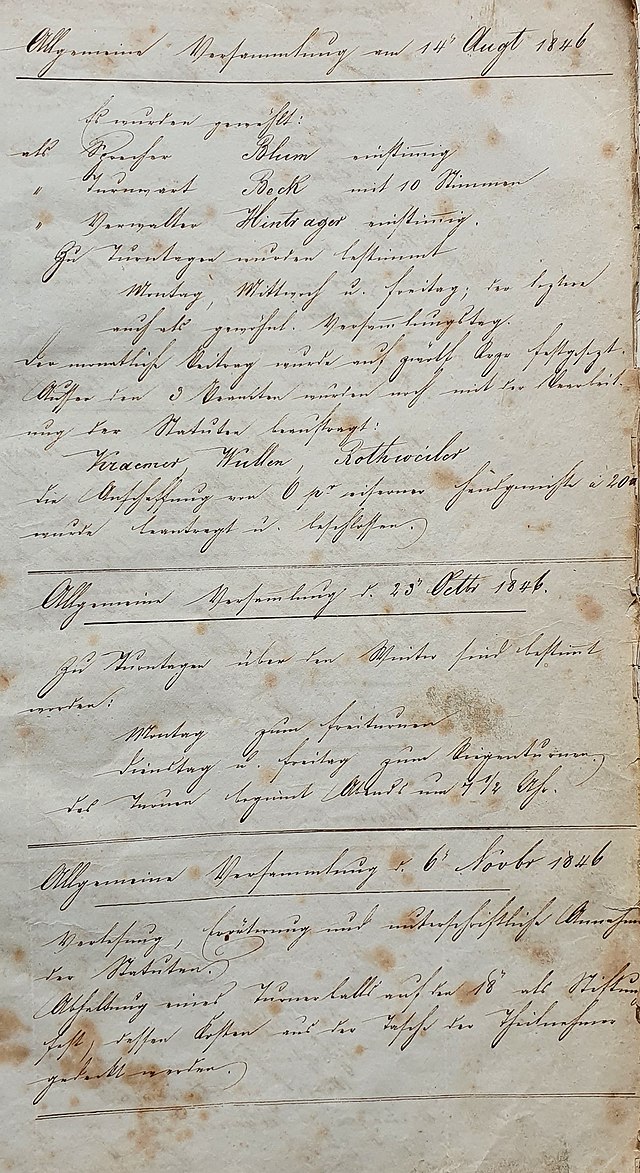 Allgemeine Versammlung am 14t Augt 1846
Es wurden gewählt:
als Sprecher Blum einstimmig
" Turnwart Bock mit 10 Stimmen
" Verwalter Hintrager einstimmig.
Zu Turntagen wurden bestimmt
Montag, Mittwoch u. Freitag; der leztere
auch als gewöhnl. Versammlungstag.
Der monatliche Beitrag wurde auf zwölf Kr. festgesezt.
Ausser den 3 Beamten wurden noch mit der Bearbeit
ung der Statuten beauftragt:
Kraemer, Wullen, Rothweiler
Die Anschaffung von 6 pr eiserner Handgewichte à 20
wurde beantragt u. beschlossen.
Allgemeine Versamlung d. 23t Octbr 1846.
Zu Turntagen über den Winter sind bestimmt
worden:
Montag zum Freiturnen
Dienstag u. Freitag zum Riegenturnen.
Das Turnen beginnt Abends um 7 1/2 Uhr.
Allgemeine Versammlung d. 6t Novbr 1846
Verlesung, Erörterung und unterschriftliche Annahm
der Statuten.
Abhaltung eines Turnerballs auf den 18t als Stiftun
fest, dessen Kosten aus der Tasche der Theilnehmer
gedeckt werden.